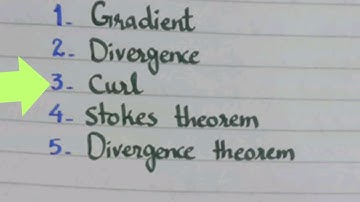 1. Gradient
2. Divergence
3- Curl
4- Stokes theorem
5- Divergence theorem